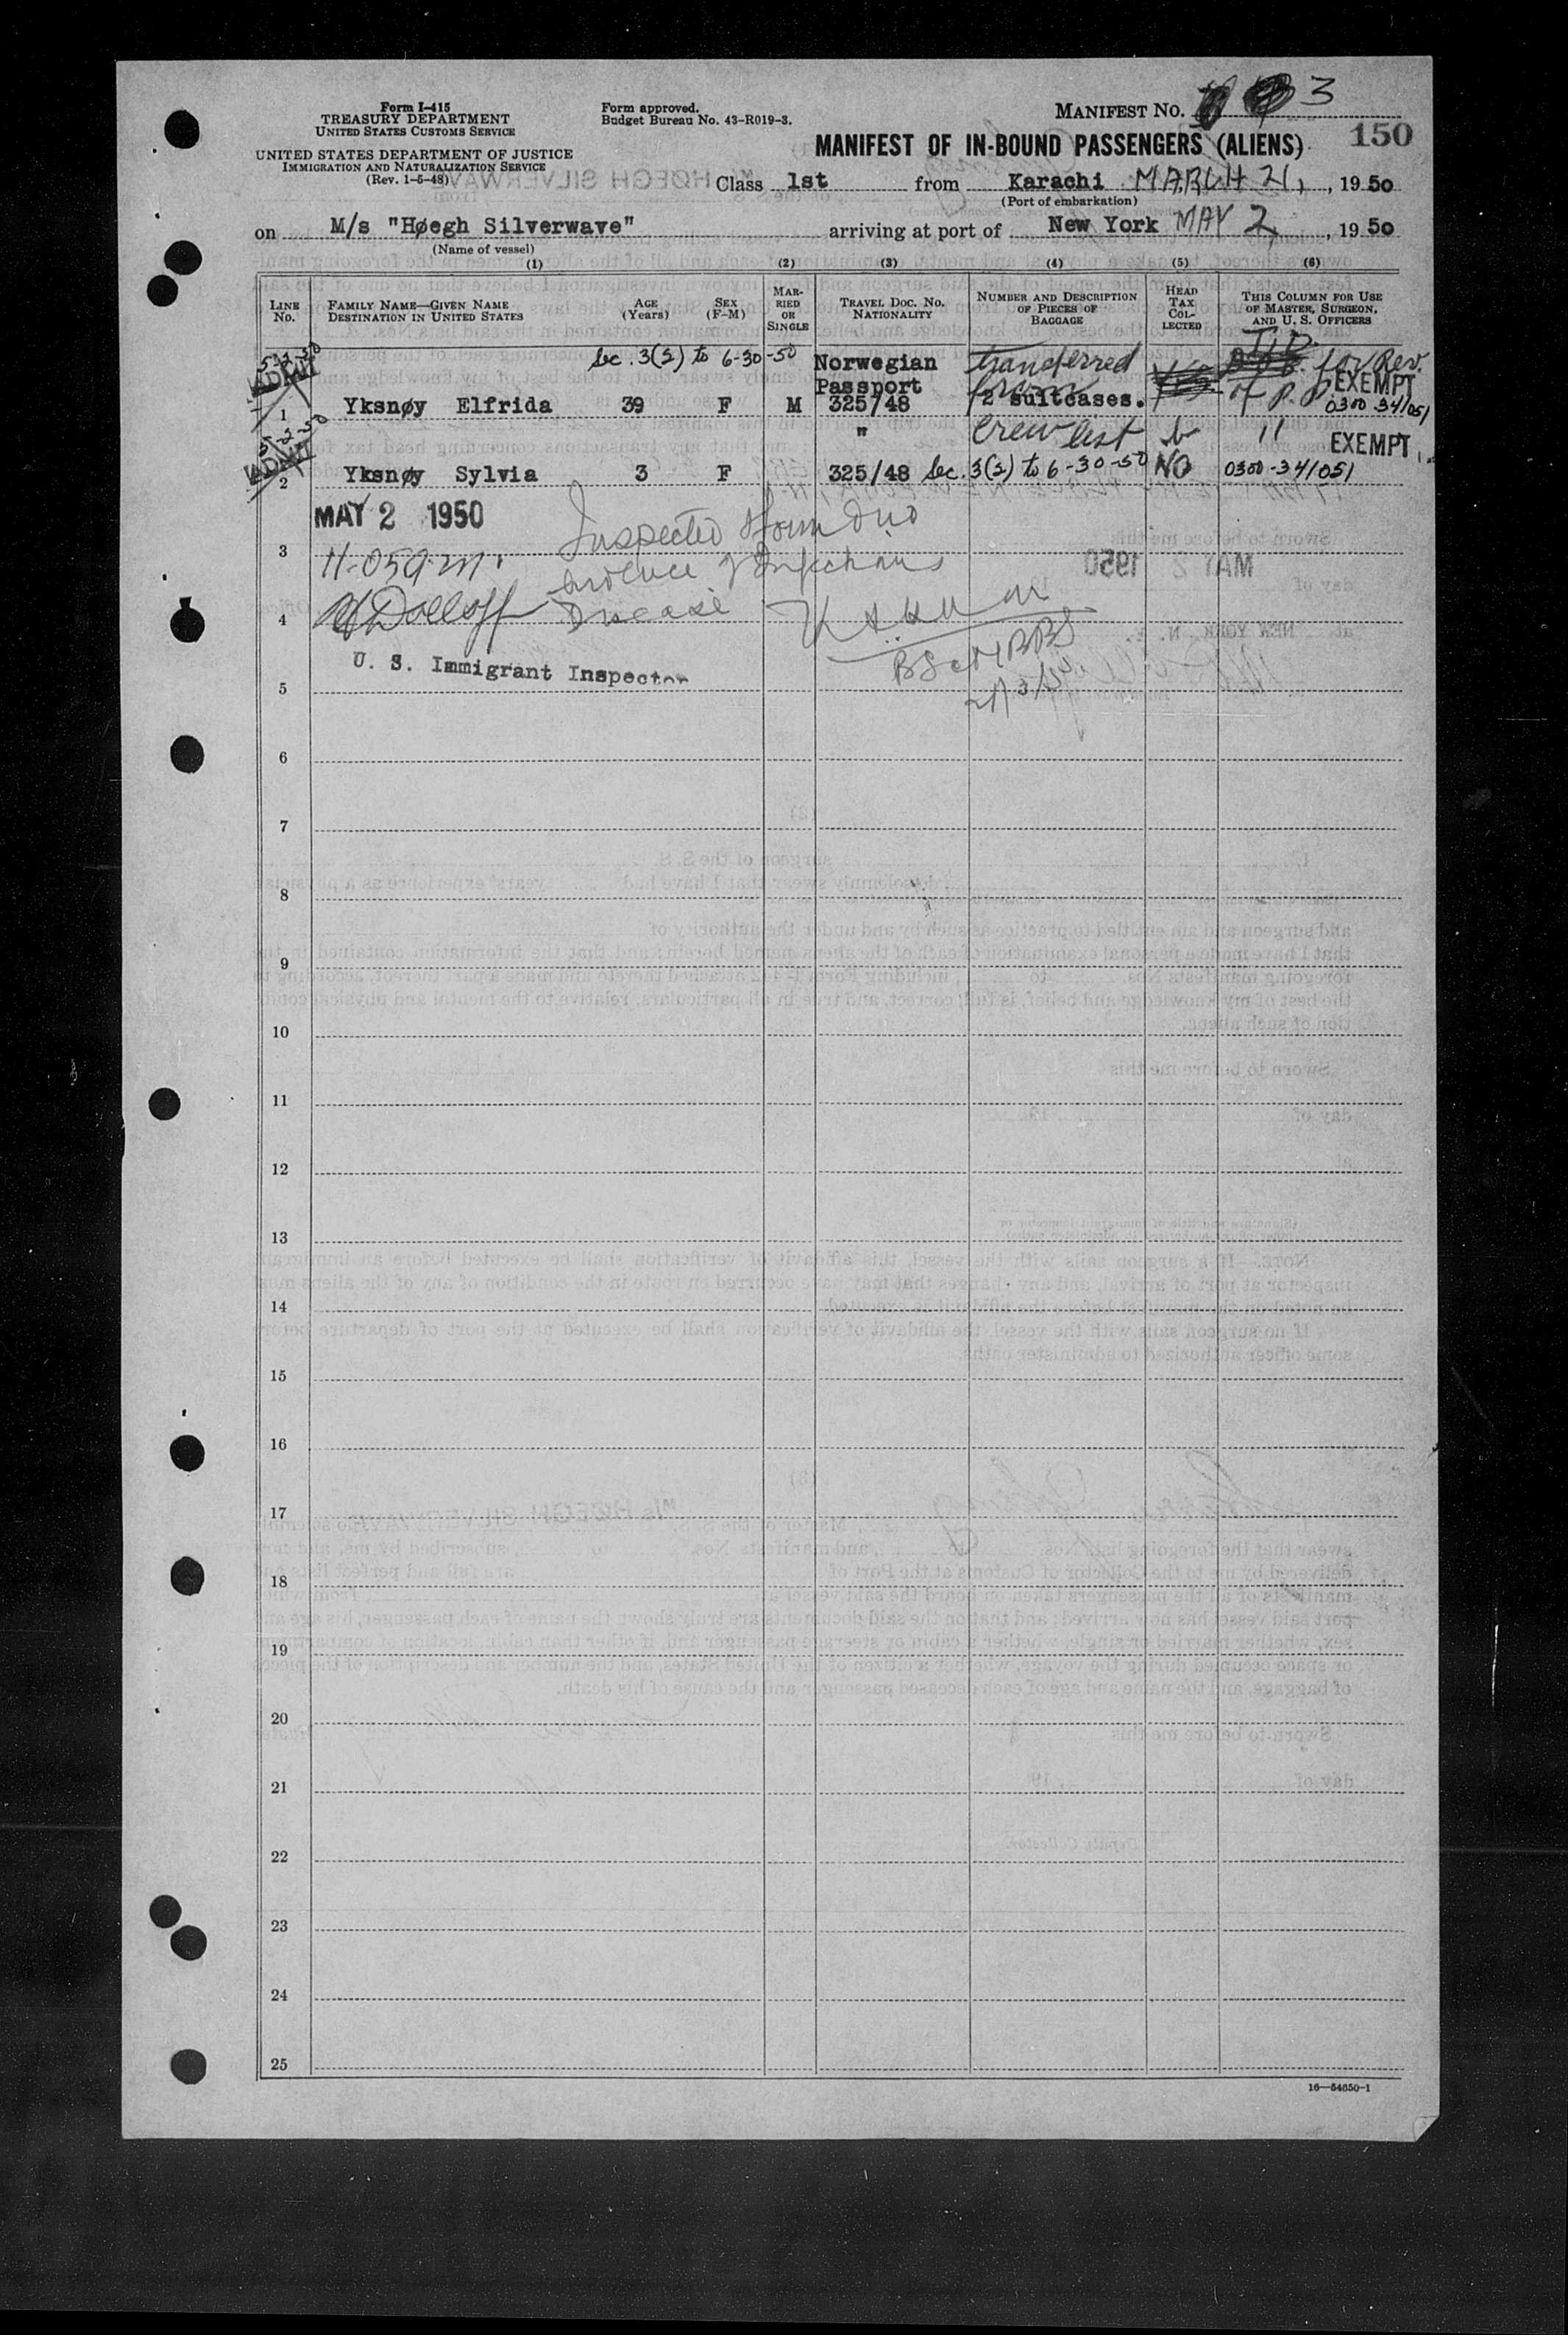 Form I-415
TREASURY DEPARTMENT
UNITED STATES CUSTOMS SERVICE
UNITED STATES DEPARTMENT OF JUSTICE
IMMIGRATION AND NATURALIZATION SERVICE
(Rev. 1-5-48)
Form approved.
Budget Bureau No. 43-R019-3.
MANIFEST No. 3
150
MANIFEST OF IN-BOUND PASSENGERS (ALIENS)
Class 1st from Karachi MARCH 21, 1950
(Port of embarkation)
on M/s "Høegh Silverwave" arriving at port of New York MAY 2, 1950
(Name of vessel)
(1) (2) (3) (4) (5) (6)
LINE No.
FAMILY NAME—GIVEN NAME
DESTINATION IN UNITED STATES
AGE (Years)
SEX (F-M)
MARRIED OR SINGLE
TRAVEL DOC. No.
NATIONALITY
NUMBER AND DESCRIPTION OF PIECES OF BAGGAGE
HEAD TAX COLLECTED
THIS COLUMN FOR USE OF MASTER, SURGEON, AND U. S. OFFICERS
5-2-50 ADMIT Sec. 3(2) to 6-30-50 Norwegian transferred for Rev.
Passport from of P.P. EXEMPT
1 Yksnøy Elfrida 39 F M 325/48 2 suitcases. 0300-34/051
5-2-50 ADMIT " Crew list " EXEMPT
2 Yksnøy Sylvia 3 F 325/48 Sec. 3(2) to 6-30-50 NO 0300-34/051
MAY 2 1950
Inspected
3 11.05 a.m.
evidence of Infectious
4 Dolloff Disease
U. S. Immigrant Inspector
BSc MBBS
5
6
7
8
9
10
11
12
13
14
15
16
17
18
19
20
21
22
23
24
25
16—54650-1